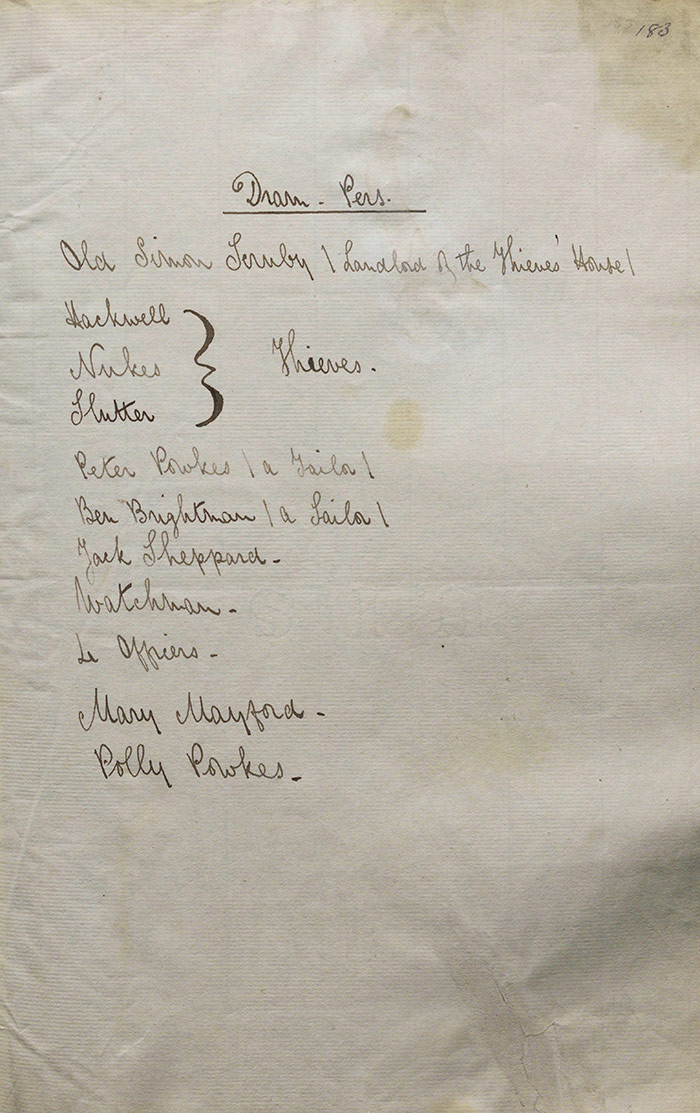 183
Dram - Pers.
Old Simon Scruby \ Landlord of the Thieves' House /
Hackwell
Nukes
Thieves.
Slutter
Peter Powkes \ a Tailor /
Ben Brightman / a Sailor \
Jack Sheppard -
Watchman -
Mary Mayford -
Polly Powkes -